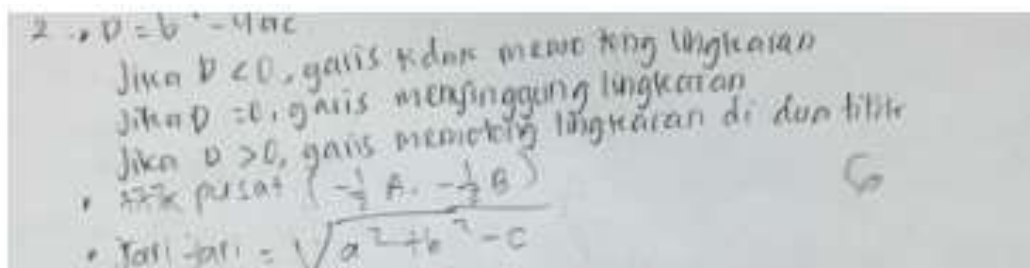 2 • D = b² - 4ac
Jika D < 0, garis tidak memotong lingkaran
Jika D = 0, garis menyinggung lingkaran
Jika D > 0, garis memotong lingkaran di dua titik
• titik pusat (-½ A, -½ B)
• Jari-jari = √a² + b² - c